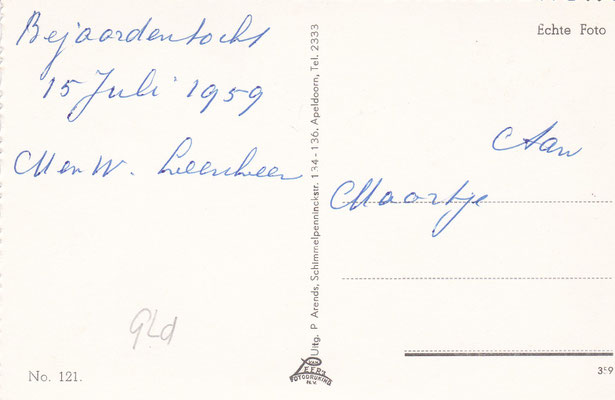 Bejaardentocht
15 Juli 1959
M en W.
Echte Foto
Aan
Maartje
Uitg. P Arends, Schimmelpenninckstr. 134-136, Apeldoorn, Tel. 2333
Gld
No. 121.
VAN LEER'S
FOTODRUKIND.
N.V.
359